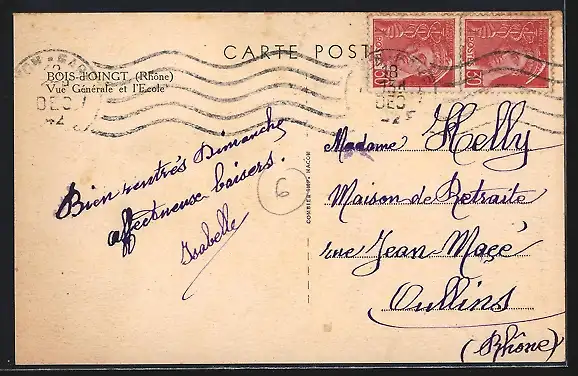 CARTE POSTALE
BOIS-d'OINGT (Rhône)
Vue Générale et l'Ecole
DEC
42
Bien rentrés Dimanche
affectueuse baisers.
Isabelle
6
COMBIER IMP. MACON
Madame Helly
Maison de Retraite
rue Jean Macé
Oullins
(Rhône)